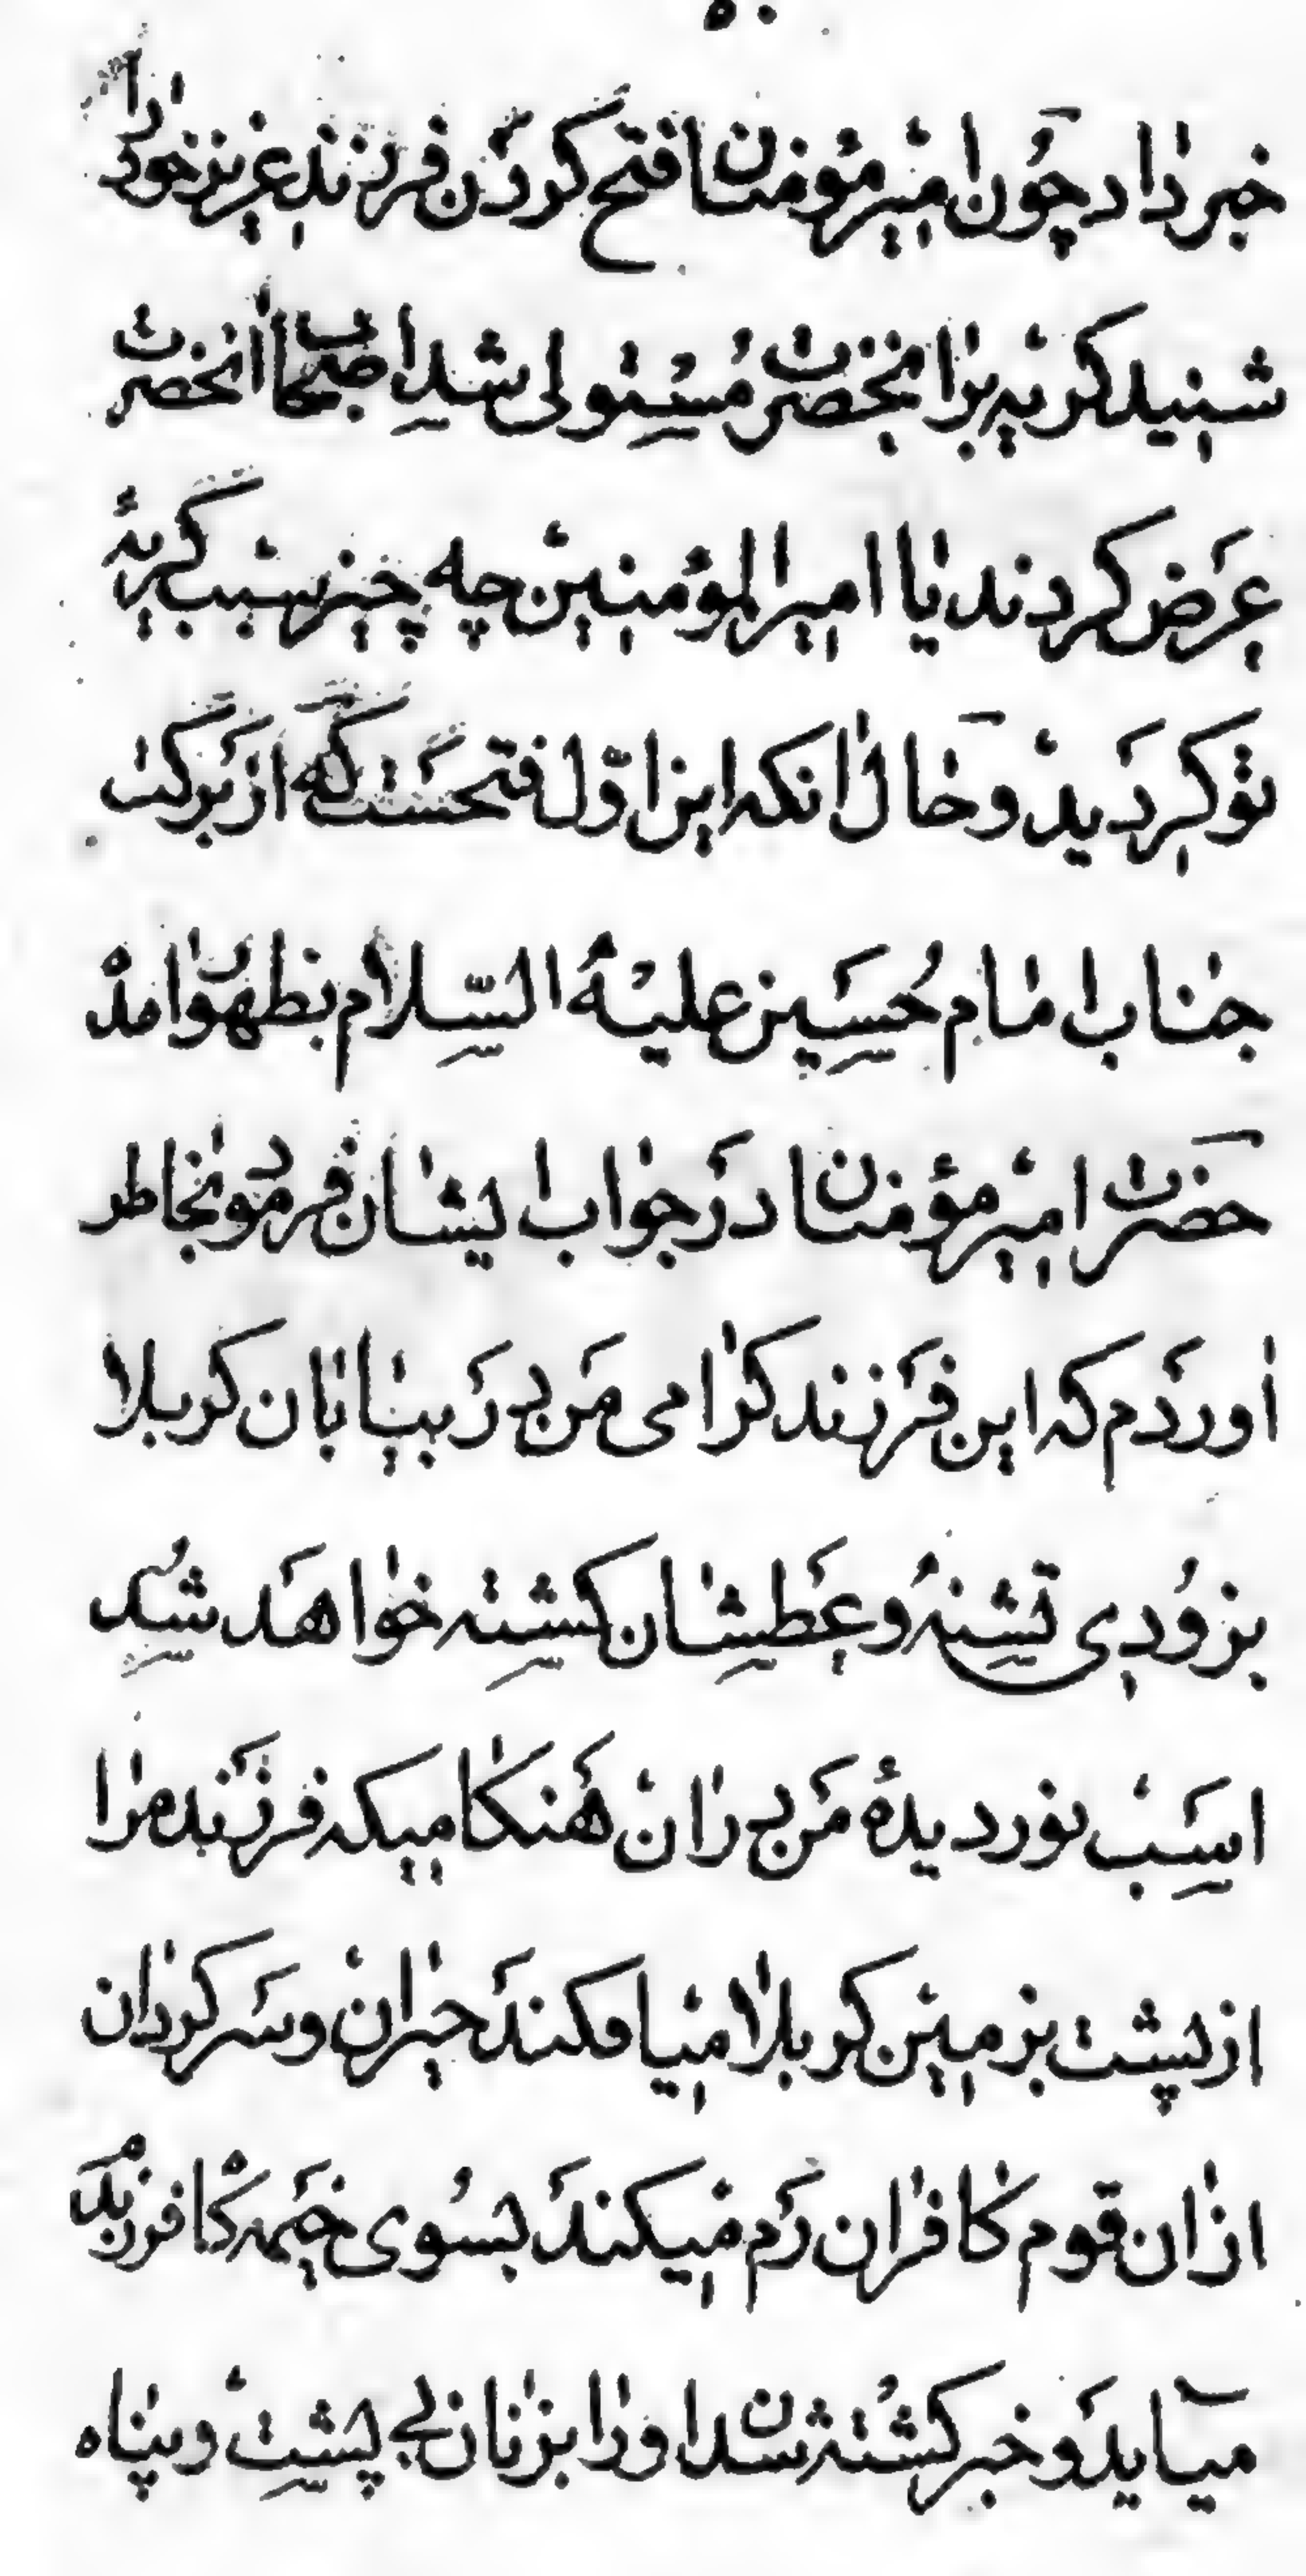 خبر داد چون امیر مؤمنان فتح کردن فرزند عزیز خود را
شنید کریه بر انحضرت مستولی شد اصحاب انحضرت
عرض کردند یا امیر المؤمنین چه چیز سبب کریهٔ
تو کردید و حال انکه این اوّل فتحست که از برکت
جناب امام حسین علیه السّلام بظهور امد
حضرت امیر مؤمنان در جواب ایشان فرمود بخاطر
اوردم که این فرزند کرامی من در بیابان کربلا
بزودی تشنه و عطشان کشته خواهد شد
اسب نور دیدهٔ من در ان هنکامیکه فرزند مرا
از پشت بزمین کربلا میافکند حیران و سرکردان
از ان قوم کافران رم میکند بسوی خیمه کاه فرزندم
میآید و خبر کشته شدن او را بزنان بی پشت و پناه